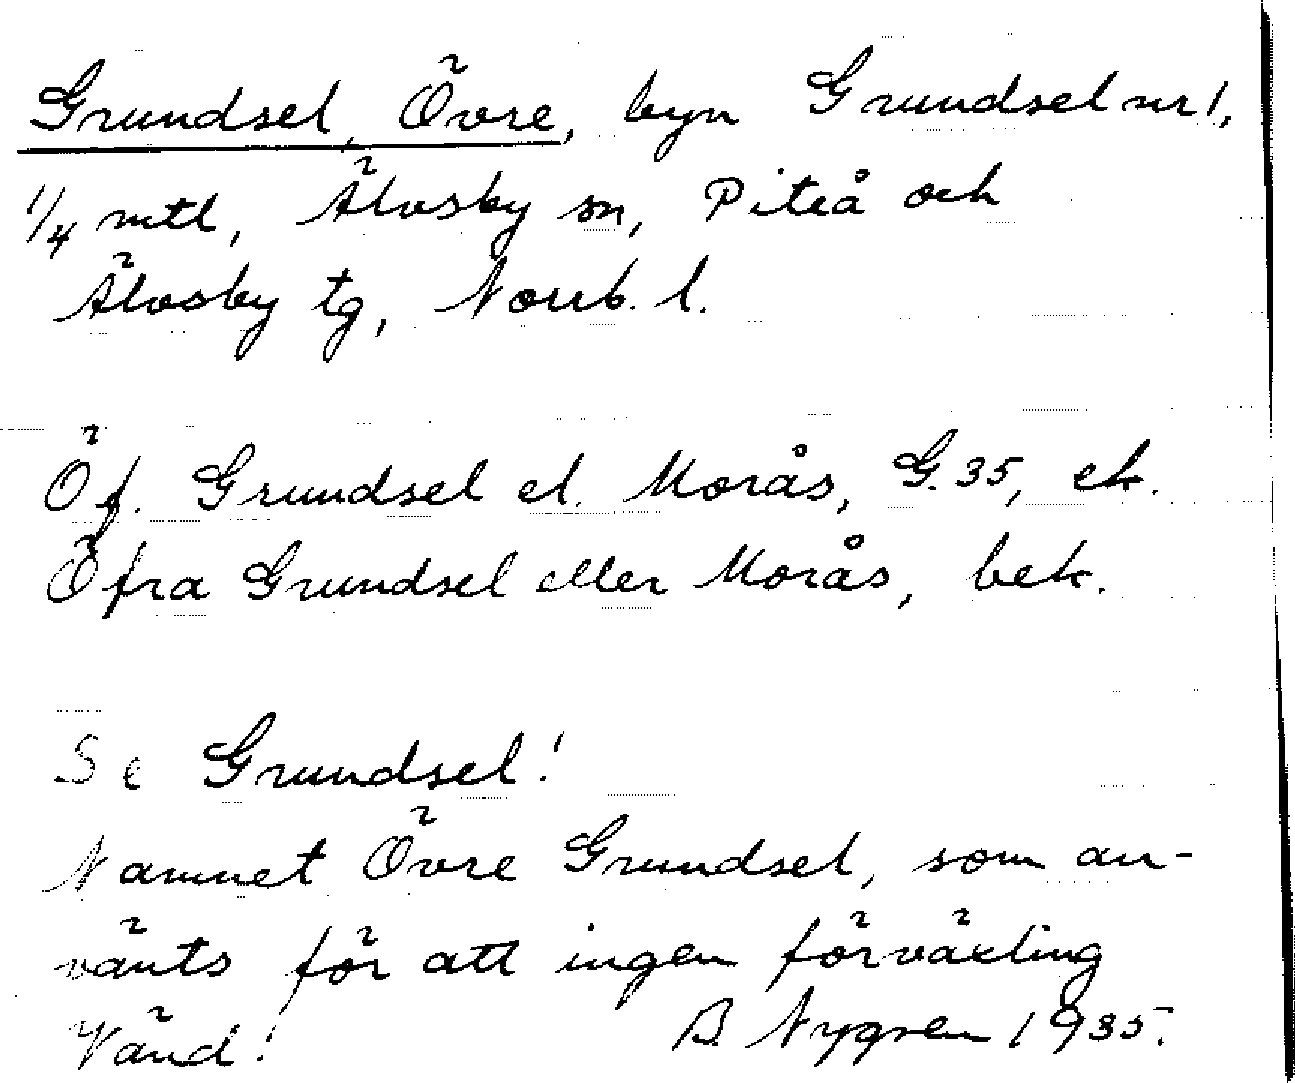 Grundsel, Övre, byn Grundsel nr 1,
1/4 mtl, Älvsby sn, Piteå och
Älvsby tg, Norrb. l.
Öf. Grundsel el. Morås, G. 35, ek.
Öfra Grundsel eller Morås, bek.
Se Grundsel!
Namnet Övre Grundsel, som an-
vänts för att ingen förväxling
Vänd! B. Nygren 1935.